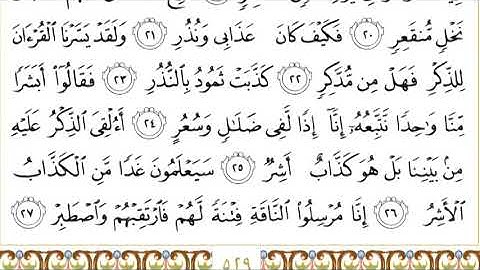 نَخۡلٖ مُّنقَعِرٖ ٢٠ فَكَيۡفَ كَانَ عَذَابِي وَنُذُرِ ٢١ وَلَقَدۡ يَسَّرۡنَا ٱلۡقُرۡءَانَ
لِلذِّكۡرِ فَهَلۡ مِن مُّدَّكِرٖ ٢٢ كَذَّبَتۡ ثَمُودُ بِٱلنُّذُرِ ٢٣ فَقَالُوٓاْ أَبَشَرٗا
مِّنَّا وَٰحِدٗا نَّتَّبِعُهُۥٓ إِنَّآ إِذٗا لَّفِي ضَلَٰلٖ وَسُعُرٍ ٢٤ أَءُلۡقِيَ ٱلذِّكۡرُ عَلَيۡهِ
مِنۢ بَيۡنِنَا بَلۡ هُوَ كَذَّابٌ أَشِرٞ ٢٥ سَيَعۡلَمُونَ غَدٗا مَّنِ ٱلۡكَذَّابُ
ٱلۡأَشِرُ ٢٦ إِنَّا مُرۡسِلُواْ ٱلنَّاقَةِ فِتۡنَةٗ لَّهُمۡ فَٱرۡتَقِبۡهُمۡ وَٱصۡطَبِرۡ ٢٧
٥٢٩